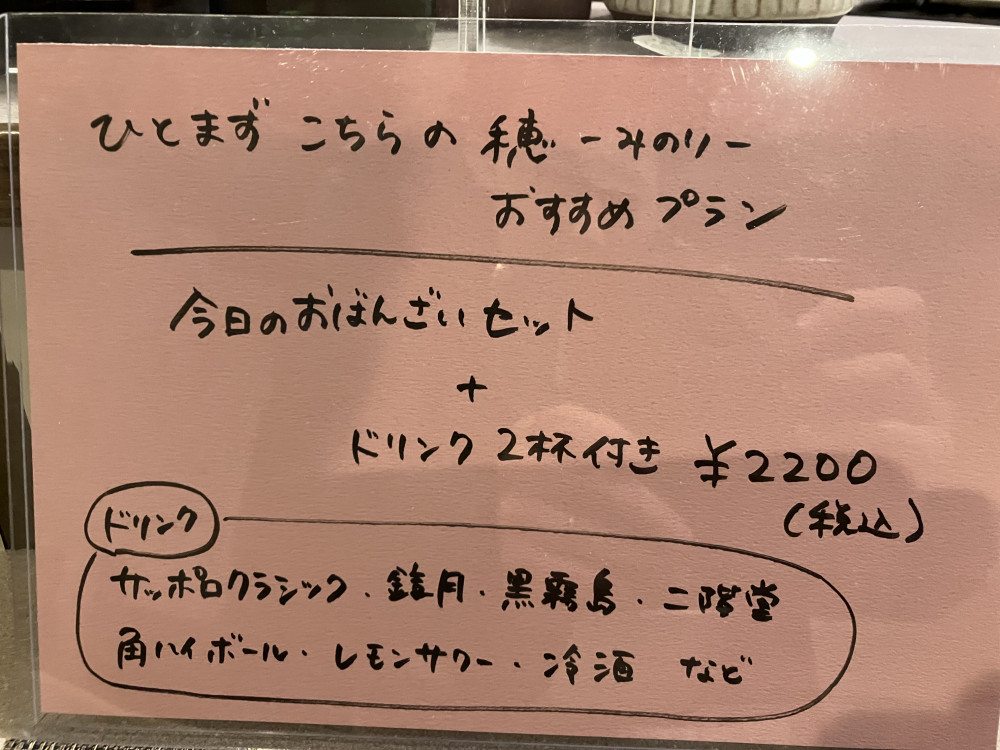 ひとまず こちらの 穂 ーみのりー
おすすめ プラン
今日のおばんざい セット
+
ドリンク 2杯付き ¥2200
(税込)
ドリンク
サッポロクラシック・鏡月・黒霧島・二階堂
角ハイボール・レモンサワー・冷酒 など